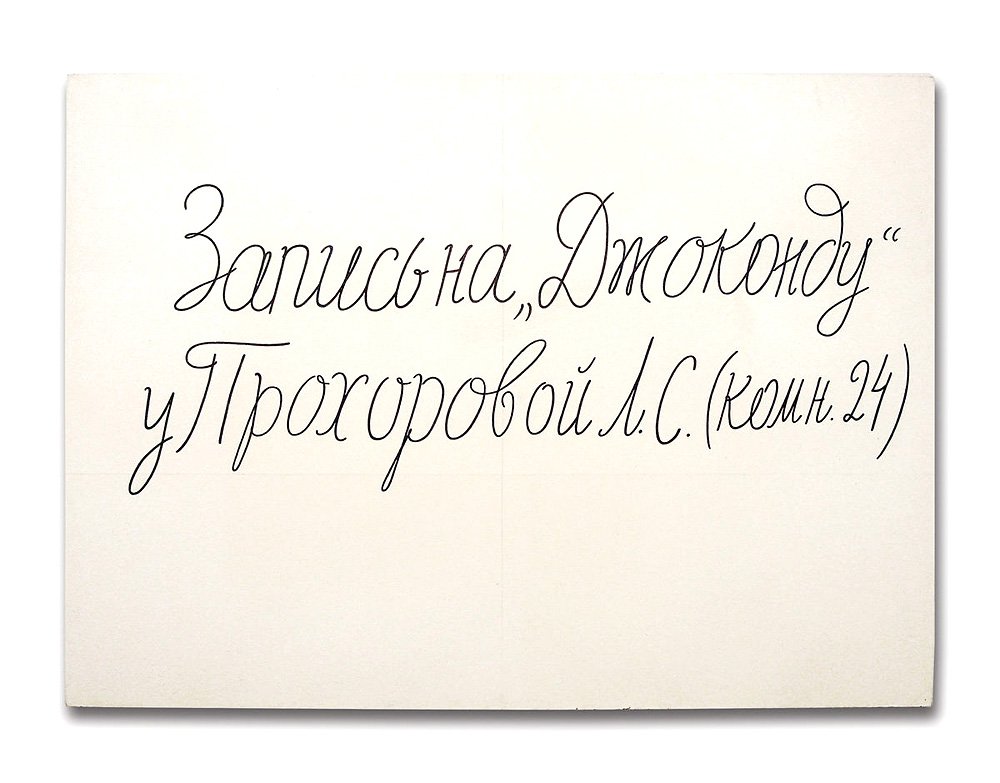 Запись на „Джоконду“
у Прохоровой Л. С. (комн. 24)